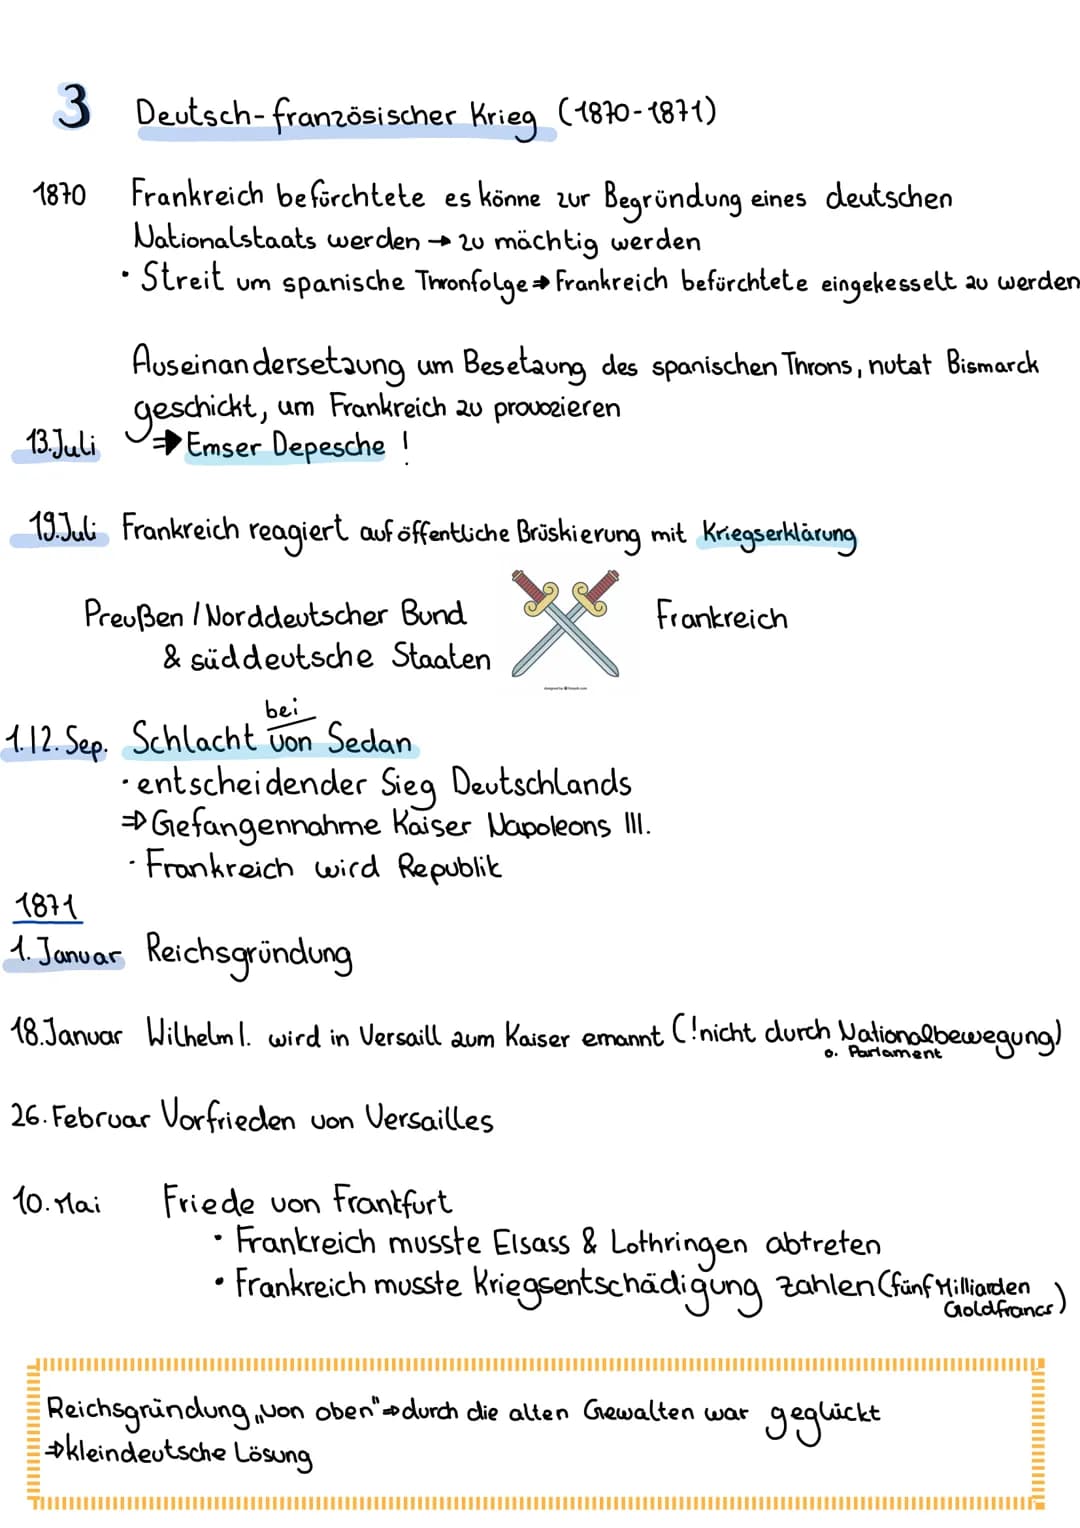 3 Deutsch-französischer Krieg (1870-1871)
1870 Frankreich befürchtete es könne zur Begründung eines deutschen
Nationalstaats werden → zu mächtig werden
• Streit um spanische Thronfolge ⇒ Frankreich befürchtete eingekesselt zu werden
Auseinandersetzung um Besetzung des spanischen Throns, nutzt Bismarck
geschickt, um Frankreich zu provozieren
13. Juli ⇒ Emser Depesche !
19. Juli Frankreich reagiert auf öffentliche Brüskierung mit Kriegserklärung
Preußen / Norddeutscher Bund Frankreich
& süddeutsche Staaten
bei
1./2. Sep. Schlacht von Sedan
• entscheidender Sieg Deutschlands
⇒ Gefangennahme Kaiser Napoleons III.
• Frankreich wird Republik
1871
1. Januar Reichsgründung
18. Januar Wilhelm I. wird in Versaill zum Kaiser ernannt (!nicht durch Nationalbewegung)
o. Parlament
26. Februar Vorfrieden von Versailles
10. Mai Friede von Frantfurt
• Frankreich musste Elsass & Lothringen abtreten
• Frankreich musste Kriegsentschädigung zahlen (fünf Milliarden
Goldfrancs)
Reichsgründung „von oben" ⇒ durch die alten Gewalten war geglückt
⇒ kleindeutsche Lösung